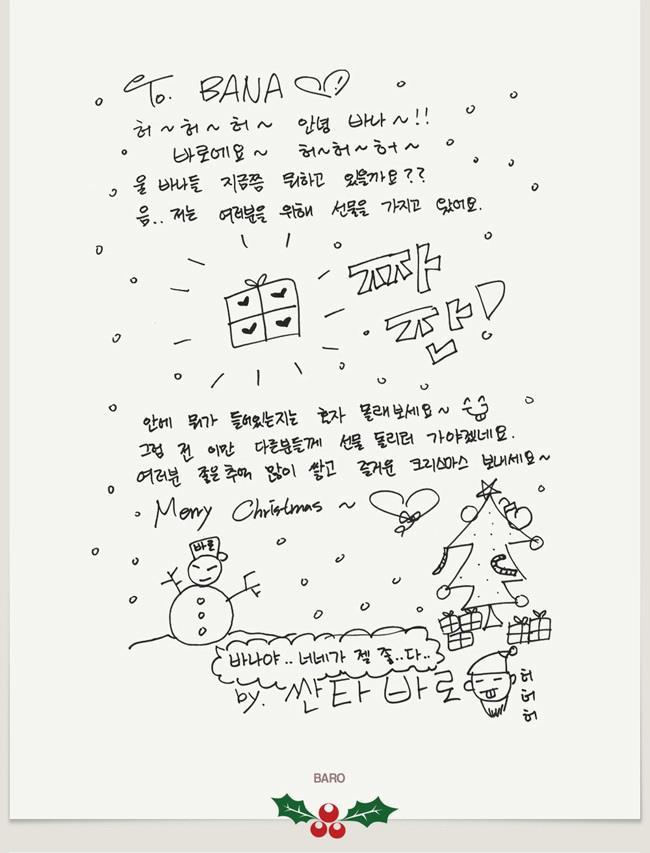 To. BANA
허~허~허~ 안녕 바나~!!
바로에요~ 허~허~허~
울 바나들 지금쯤 뭐하고 있을까요??
음.. 저는 여러분을 위해 선물을 가지고 왔어요.
짜
잔!
안에 뭐가 들어있는지는 혼자 몰래보세요~
그럼 전 이만 다른분들께 선물 돌리러 가야겠네요.
여러분 좋은추억 많이 쌓고 즐거운 크리스마스 보내세요~
Merry Christmas ~
바로
바나야.. 너네가 젤 좋..다..
by. 싼타 바로
허
허
허
BARO